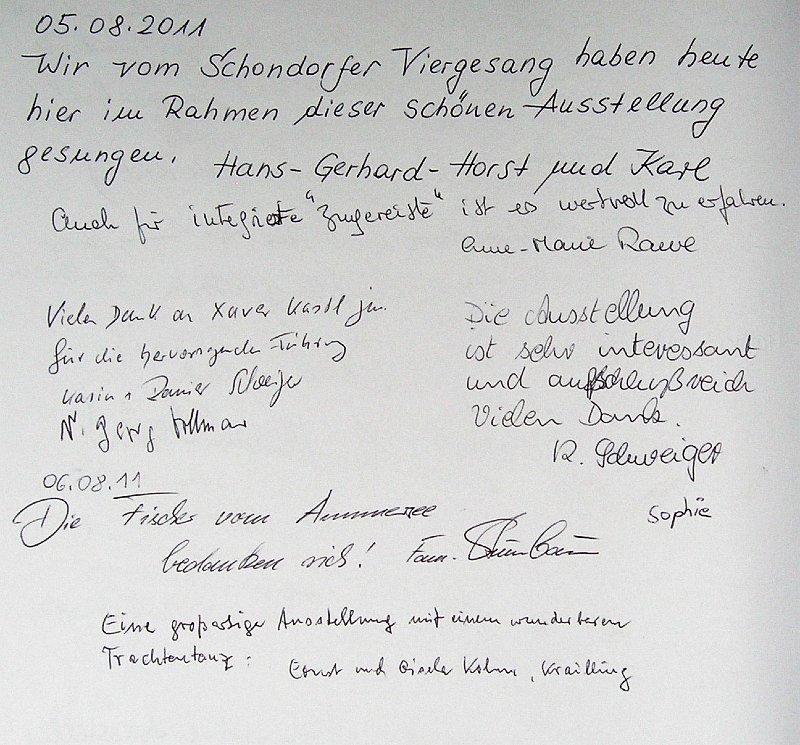 05.08.2011
Wir vom Schondorfer Viergesang haben heute
hier im Rahmen dieser schönen Ausstellung
gesungen. Hans-Gerhard-Horst und Karl
Auch für integrierte "Zugereiste" ist es wertvoll zu erfahren.
Anne-Marie Rawe
Vielen Dank an Xaver Kastl jun.
für die hervorragende Führung
Karin + Rainer
Georg
Die Ausstellung
ist sehr interessant
und aufschlußreich
Vielen Dank.
R. Schweiger
Sophie
06.08.11
Die Fischer vom Ammersee
bedanken sich! Fam.
Eine großartige Ausstellung mit einem wunderbaren
Trachtentanz!
Ernst und Gisela Kohm, Krailling